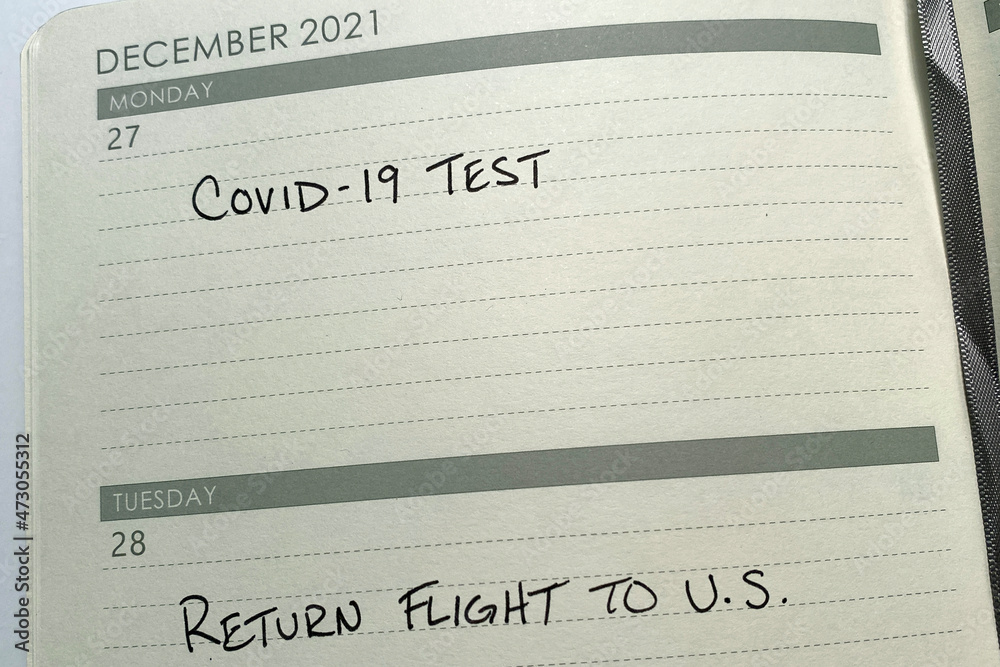 DECEMBER 2021
MONDAY
27
COVID-19 TEST
TUESDAY
28
RETURN FLIGHT TO U.S.
Adobe Stock | #473055312